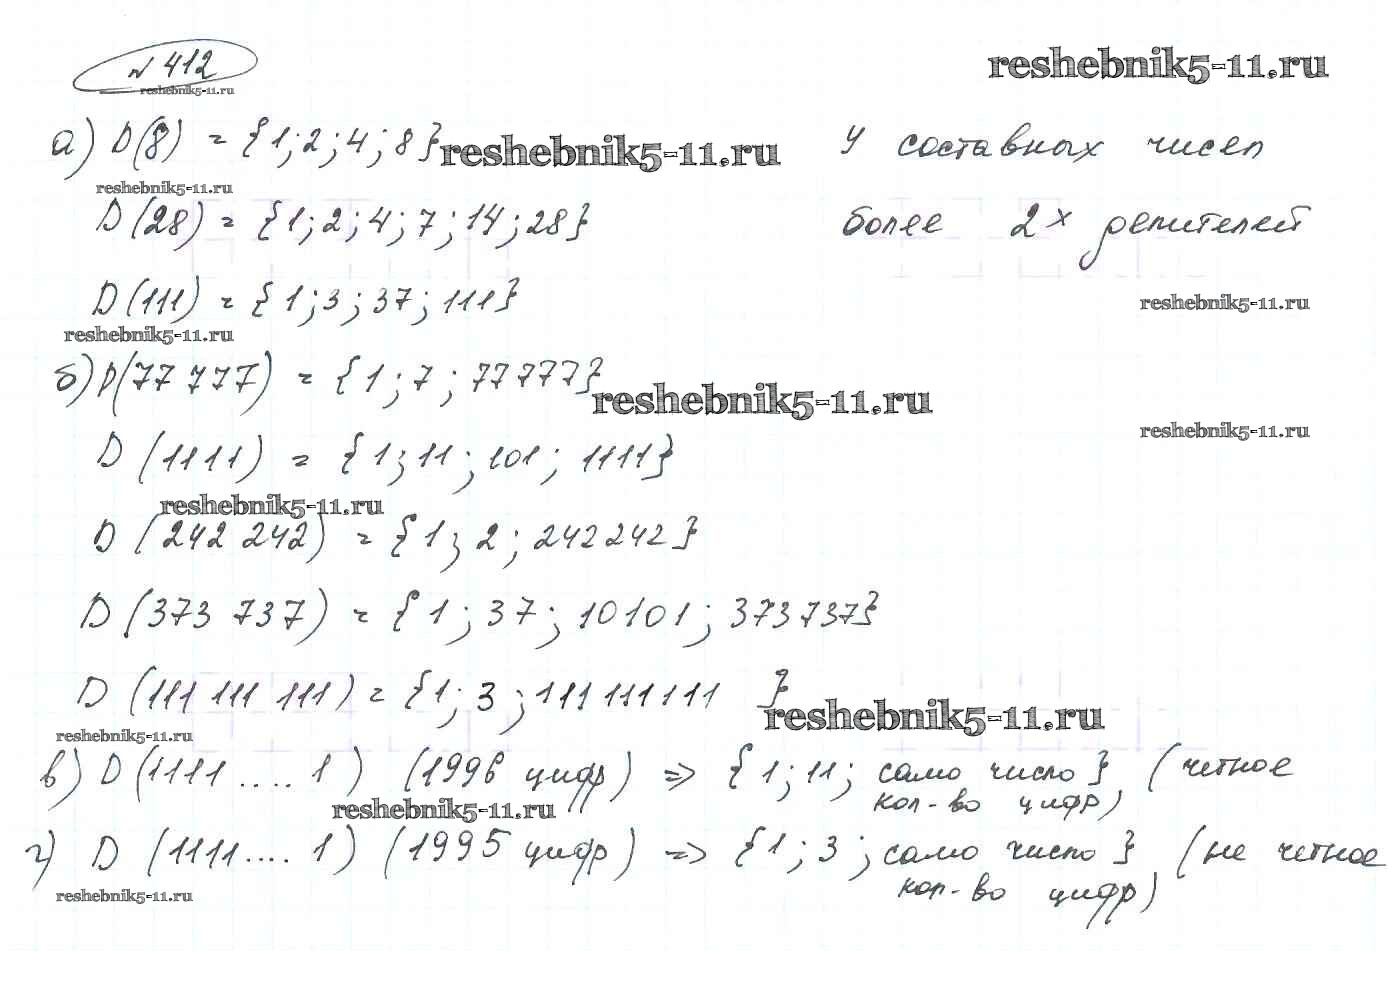 № 412
reshebnik5-11.ru
reshebnik5-11.ru
а) D(8) = {1; 2; 4; 8}
reshebnik5-11.ru
У составных чисел
reshebnik5-11.ru
D(28) = {1; 2; 4; 7; 14; 28}
более 2х делителей
D(111) = {1; 3; 37; 111}
reshebnik5-11.ru
reshebnik5-11.ru
б) D(77 777) = {1; 7; 77777}
reshebnik5-11.ru
reshebnik5-11.ru
D (1111) = {1; 11; 101; 1111}
reshebnik5-11.ru
D (242 242) = {1; 2; 242242}
D (373 737) = {1; 37; 10101; 373737}
D (111 111 111) = {1; 3; 111111111 }
reshebnik5-11.ru
reshebnik5-11.ru
в) D (1111 .... 1) (1996 цифр) => {1; 11; само число} (четное
кол-во цифр)
reshebnik5-11.ru
г) D (1111 .... 1) (1995 цифр) => {1; 3; само число} (не четное
кол-во цифр)
reshebnik5-11.ru